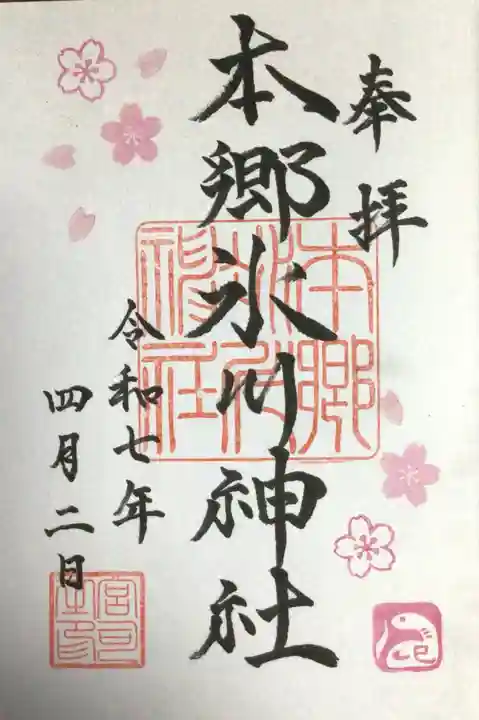 奉拝
本郷氷川神社
本郷
氷川
神社
令和七年
四月二日
宮司
之印
巳